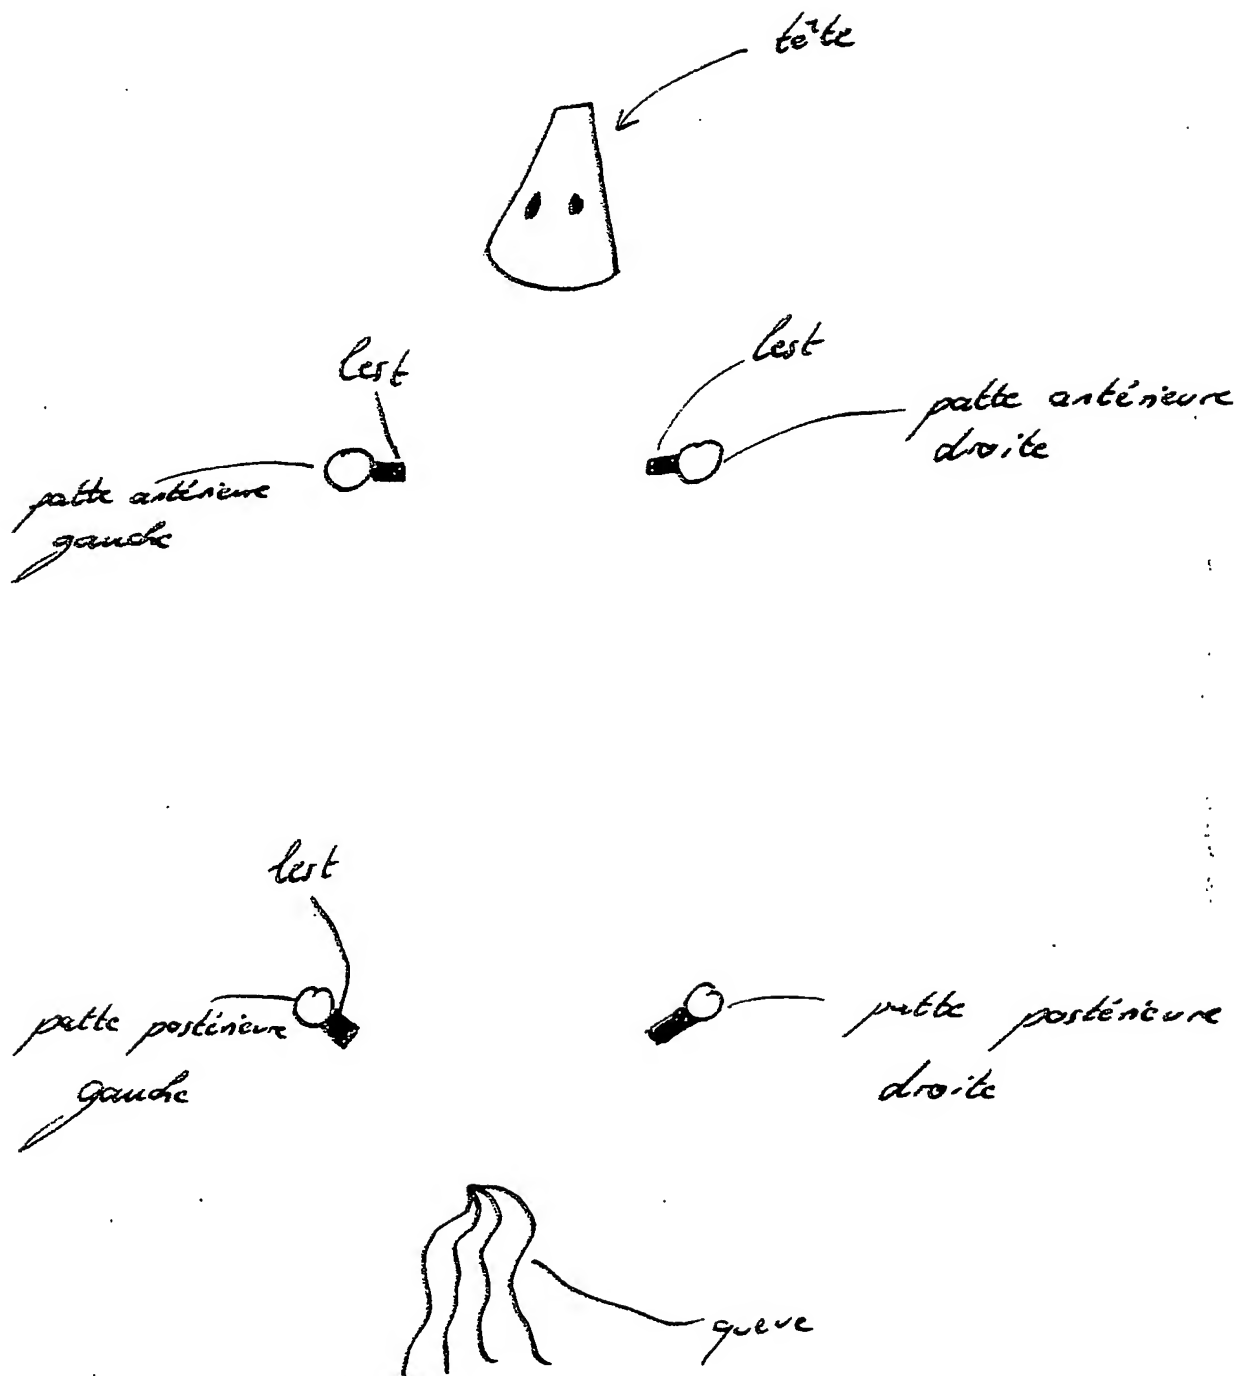 tête
lest
lest
patte antérieure
droite
patte antérieure
gauche
lest
patte postérieure
gauche
patte postérieure
droite
queue